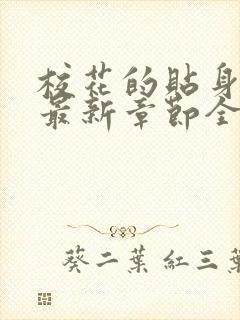 校花的貼身
最新章節全
葵二葉紅三葉